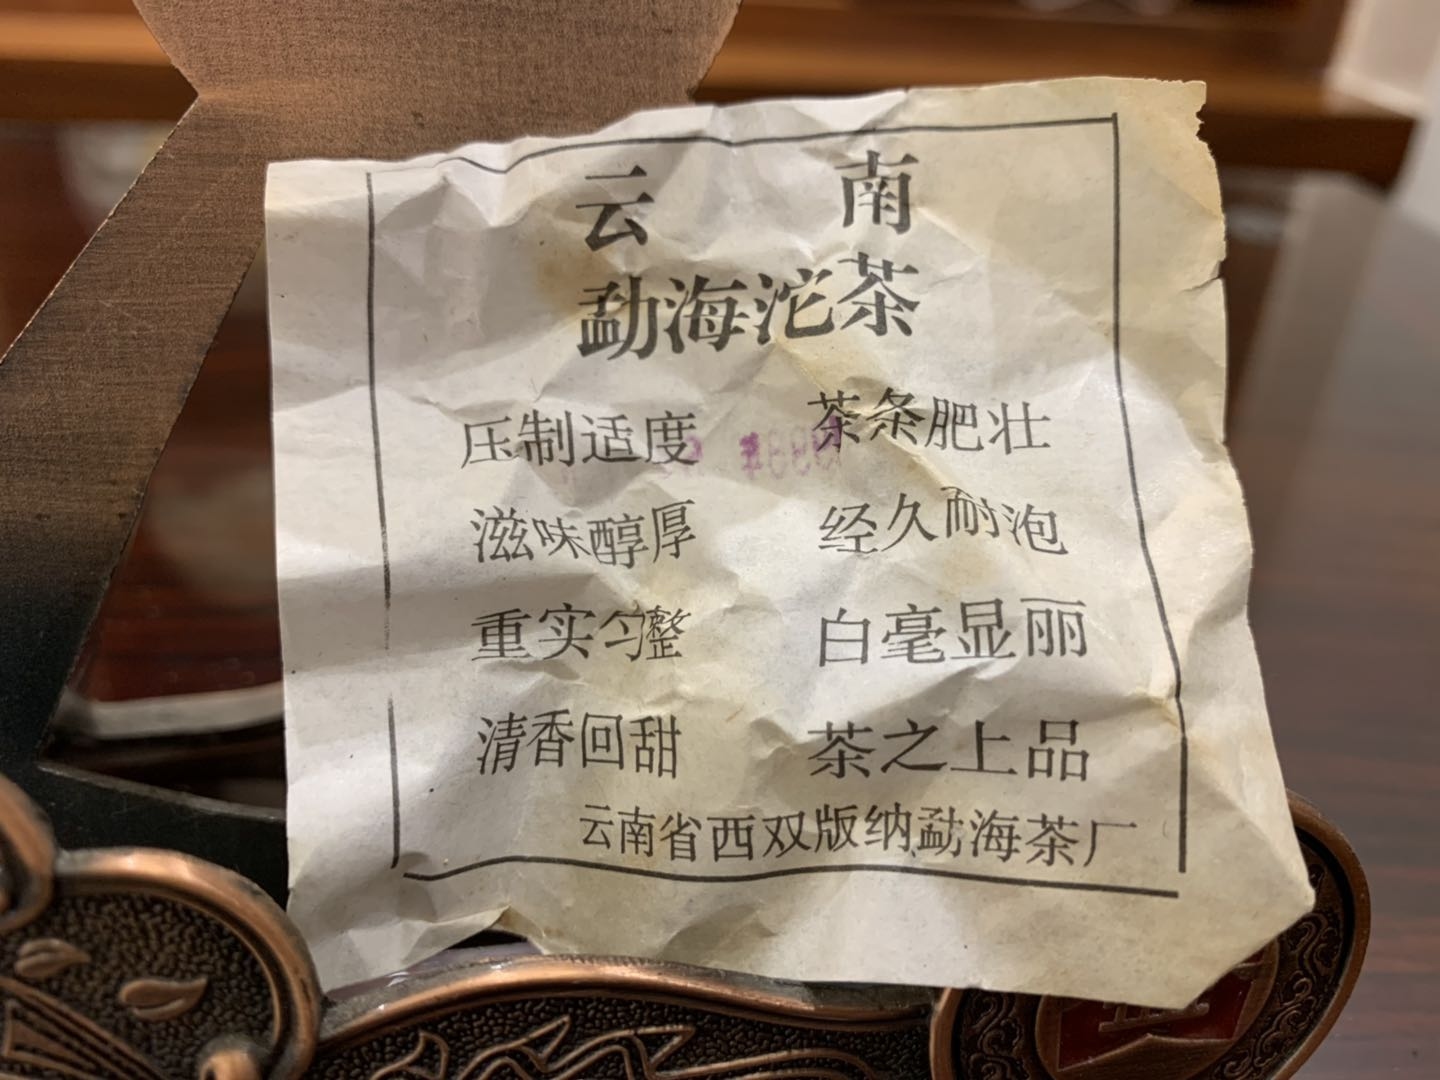 云 南
勐海沱茶
压制适度 茶条肥壮
滋味醇厚 经久耐泡
重实匀整 白毫显丽
清香回甜 茶之上品
云南省西双版纳勐海茶厂